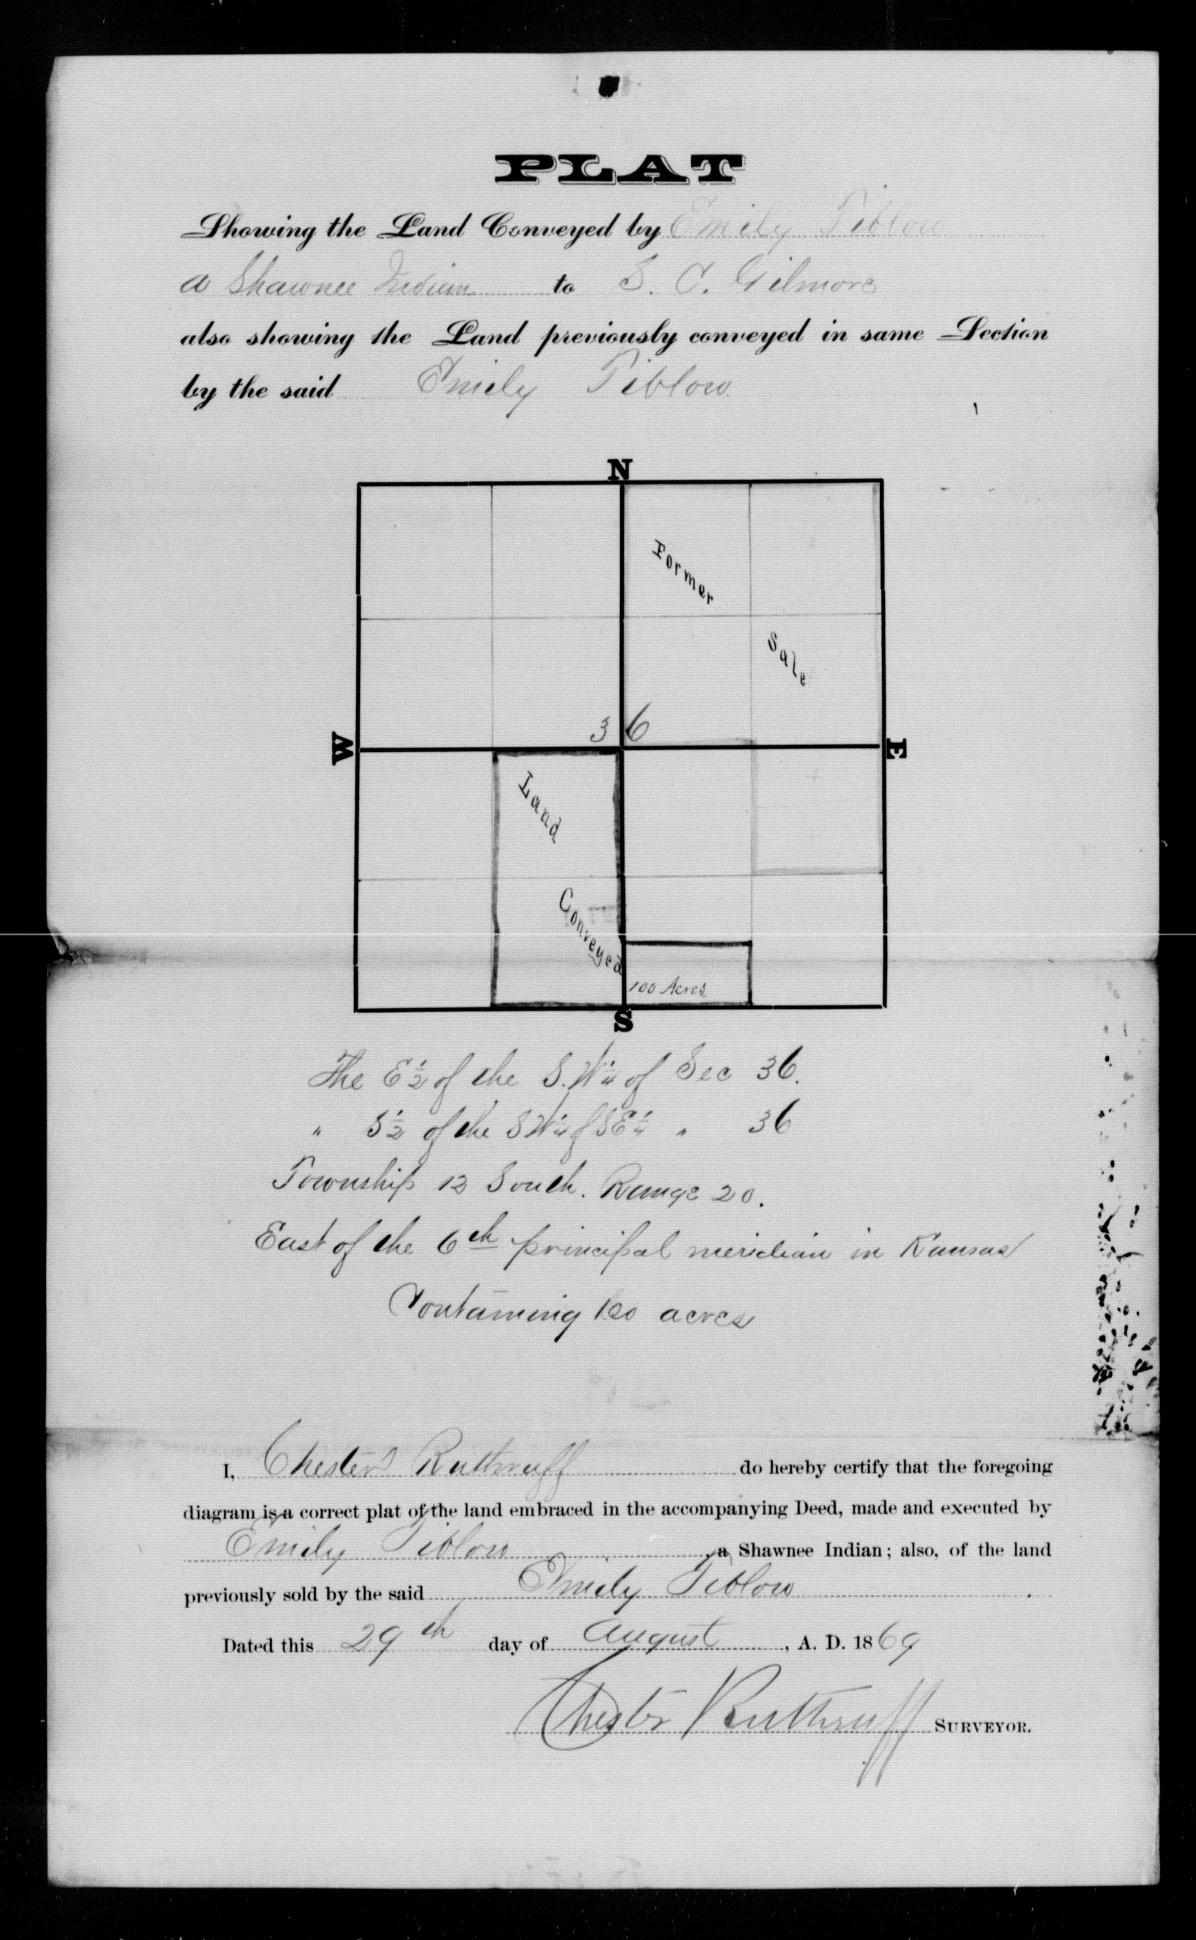 PLAT
Showing the Land Conveyed by Emily Tiblow
a Shawnee Indian to S. C. Gilmore
also showing the Land previously conveyed in same Section
by the said Emily Tiblow
N
Former
Sale
36
W
E
Land
Conveyed
100 Acres
S
The E½ of the S.W¼ of Sec 36.
" S½ of the SW¼ of SE¼ " 36
Township 12 South. Range 20.
East of the 6th principal meridian in Kansas
Containing 100 acres
I, Chester Ruthruff do hereby certify that the foregoing
diagram is a correct plat of the land embraced in the accompanying Deed, made and executed by
Emily Tiblow a Shawnee Indian; also, of the land
previously sold by the said Emily Tiblow .
Dated this 29th day of August , A. D. 1869
Chester Ruthruff SURVEYOR.